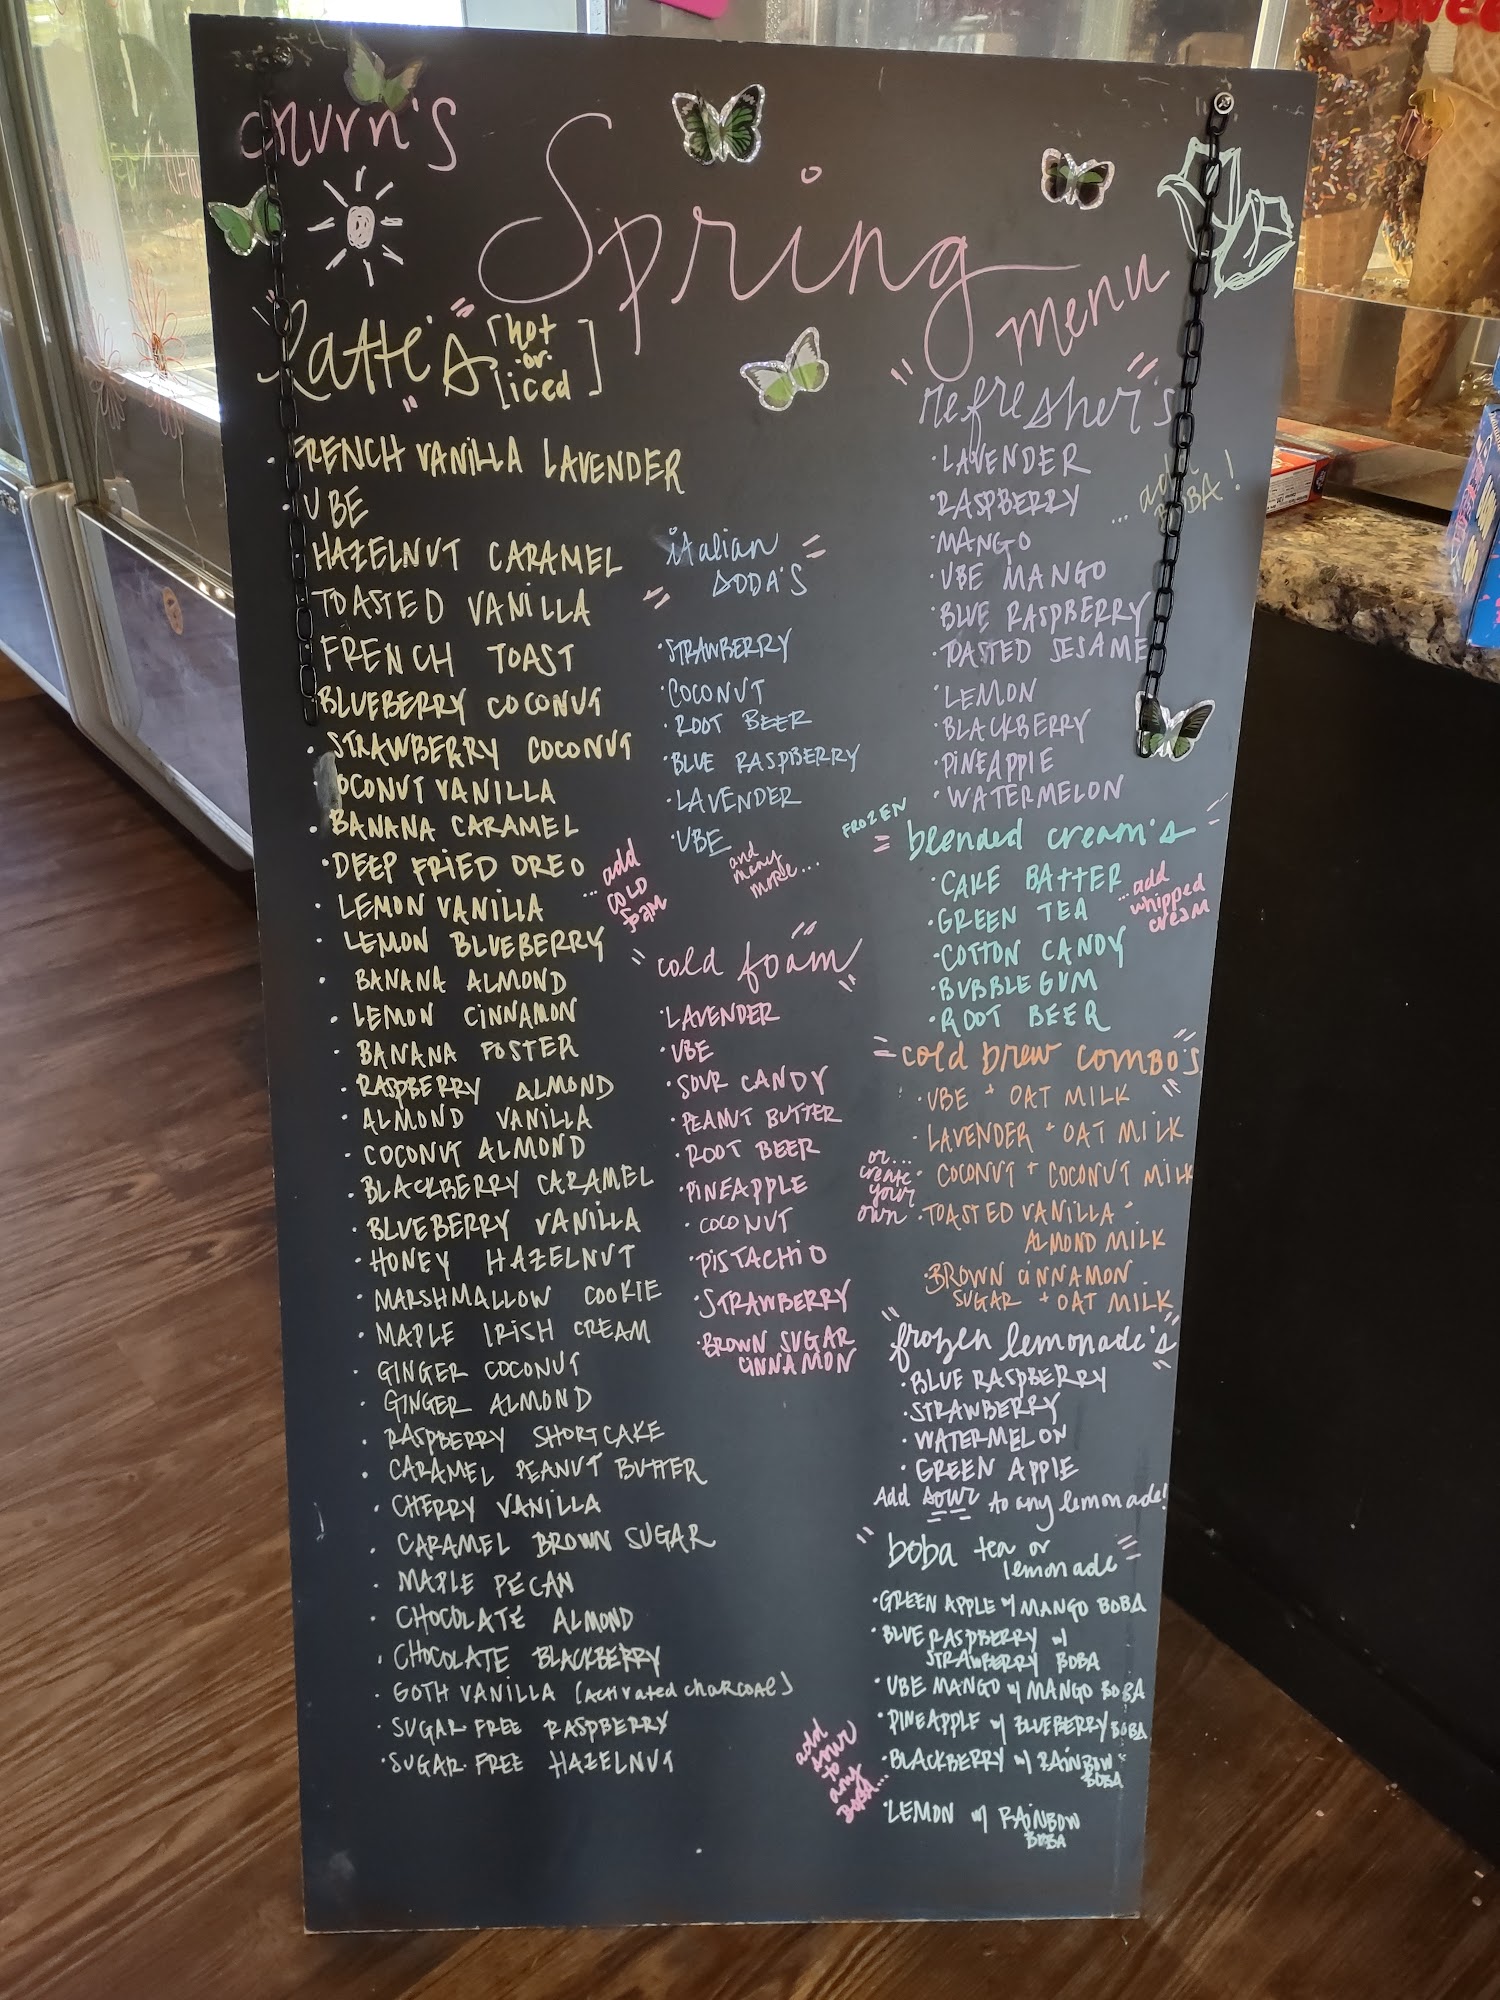 churn's
Spring
menu
"Latte's" [hot
or
iced]
· FRENCH VANILLA LAVENDER
· UBE
HAZELNUT CARAMEL
TOASTED VANILLA
FRENCH TOAST
BLUEBERRY COCONUT
· STRAWBERRY COCONUT
OCONUT VANILLA
· BANANA CARAMEL
· DEEP FRIED OREO
· LEMON VANILLA
· LEMON BLUEBERRY
· BANANA ALMOND
· LEMON CINNAMON
· BANANA FOSTER
· RASPBERRY ALMOND
· ALMOND VANILLA
· COCONUT ALMOND
· BLACKBERRY CARAMEL
· BLUEBERRY VANILLA
· HONEY HAZELNUT
· MARSHMALLOW COOKIE
· MAPLE IRISH CREAM
· GINGER COCONUT
· GINGER ALMOND
· RASPBERRY SHORTCAKE
· CARAMEL PEANUT BUTTER
· CHERRY VANILLA
· CARAMEL BROWN SUGAR
· MAPLE PECAN
· CHOCOLATE ALMOND
· CHOCOLATE BLACKBERRY
· GOTH VANILLA (activated charcoal)
· SUGAR FREE RASPBERRY
· SUGAR FREE HAZELNUT
...add
COLD
foam
"italian
SODA'S"
· STRAWBERRY
· COCONUT
· ROOT BEER
· BLUE RASPBERRY
· LAVENDER
· UBE
and
many
more...
"cold foam"
· LAVENDER
· UBE
· SOUR CANDY
· PEANUT BUTTER
· ROOT BEER
· PINEAPPLE
· COCONUT
· PISTACHIO
· STRAWBERRY
· BROWN SUGAR
CINNAMON
"refresher's"
· LAVENDER
· RASPBERRY
· MANGO
· UBE MANGO
· BLUE RASPBERRY
· TOASTED SESAME
· LEMON
· BLACKBERRY
· PINEAPPLE
· WATERMELON
...add
BOBA!
FROZEN
"blended cream's"
· CAKE BATTER
· GREEN TEA
· COTTON CANDY
· BUBBLEGUM
· ROOT BEER
...add
whipped
cream
"cold brew combo's"
· UBE + OAT MILK
· LAVENDER + OAT MILK
· COCONUT + COCONUT MILK
· TOASTED VANILLA +
ALMOND MILK
· BROWN CINNAMON
SUGAR + OAT MILK
or...
create
your
own
"frozen lemonade's"
· BLUE RASPBERRY
· STRAWBERRY
· WATERMELON
· GREEN APPLE
Add sour to any lemonade!
"boba tea or
lemonade"
· GREEN APPLE w/ MANGO BOBA
· BLUE RASPBERRY w/
STRAWBERRY BOBA
· UBE MANGO w/ MANGO BOBA
· PINEAPPLE w/ BLUEBERRY BOBA
· BLACKBERRY w/ RAINBOW
BOBA
· LEMON w/ RAINBOW
BOBA
add
sour
to
any
BOBA...